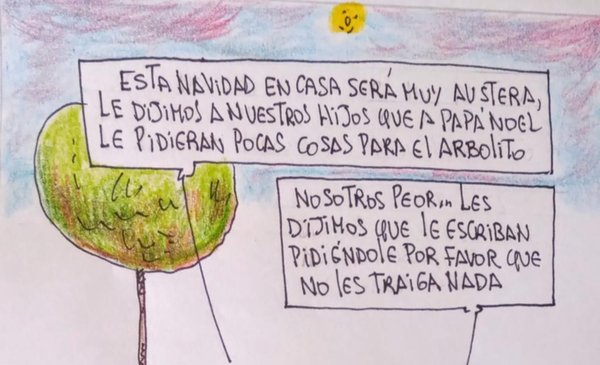 ESTA NAVIDAD EN CASA SERÁ MUY AUSTERA,
LE DIJIMOS A NUESTROS HIJOS QUE A PAPÁ NOEL
LE PIDIERAN POCAS COSAS PARA EL ARBOLITO
NOSOTROS PEOR... LES
DIJIMOS QUE LE ESCRIBAN
PIDIÉNDOLE POR FAVOR QUE
NO LES TRAIGA NADA